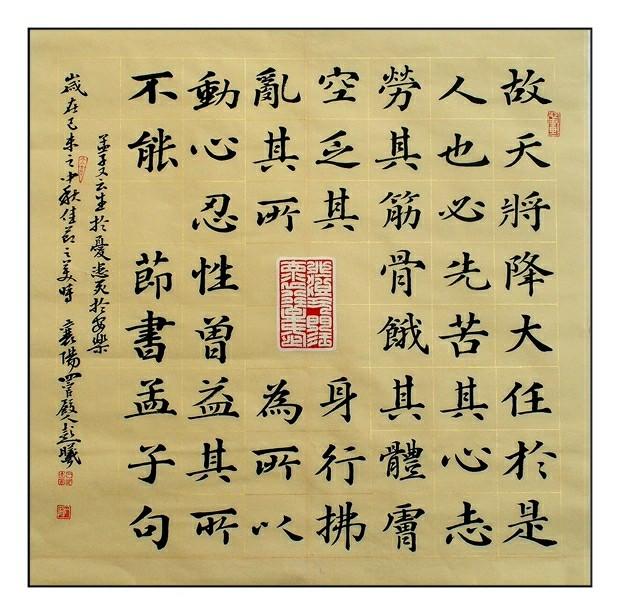 故天將降大任於是
人也必先苦其心志
勞其筋骨餓其體膚
空乏其身行拂
亂其所為所以
動心忍性曾益其所
不能 節書孟子句
孟子又云生於憂患死於安樂
歲在己未之中秋佳節之美時 襄陽四官殿人